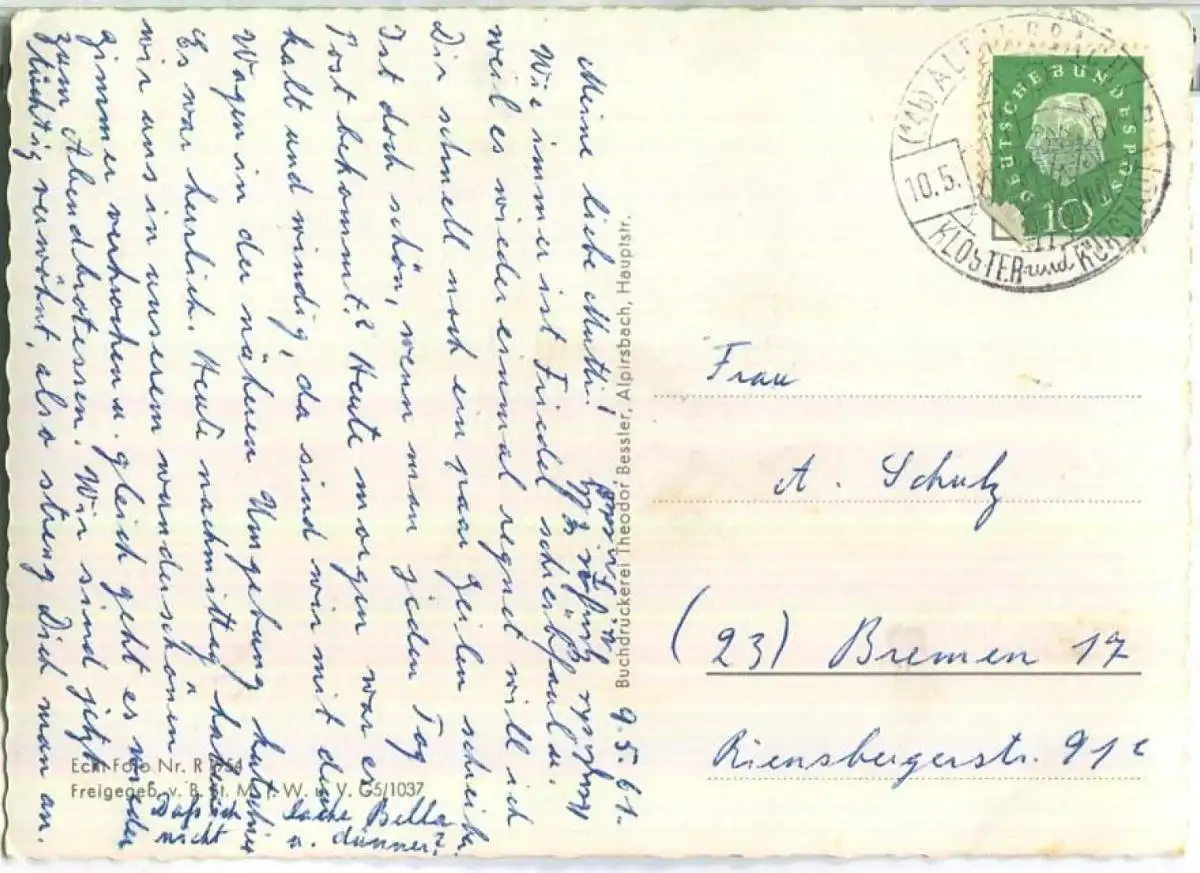 9.5.61.
Meine liebe Mutti!
Wie immer ist Friedel schreibfaul u.
weil es wieder einmal regnet will ich
Dir schnell noch ein paar Zeilen schreiben.
Ist doch schön, wenn man jeden Tag
Post bekommt? Heute morgen war es
kalt und windig, da sind wir mit dem
Wagen in der näheren Umgebung kutschiert
Es war herrlich. Heute nachmittag haben
wir uns in unserem wunderschönen
Zimmer verkrochen u. gleich geht es wieder
zum Abendbrotessen. Wir sind jetzt
tüchtig verwöhnt, also streng Dich man an.
Daß ich
nicht lache Bella
u. dünner?
Buchdruckerei Theodor Bessler, Alpirsbach, Hauptstr.
Echt Foto Nr. R
Freigegeb. v. B. St. M. f. W. u. V. G5/1037
DEUTSCHE BUNDESPOST
10
10.5.
KLOSTER und KURSTADT
Frau
A. Schulz
(23) Bremen 17
Riensbergerstr. 91c